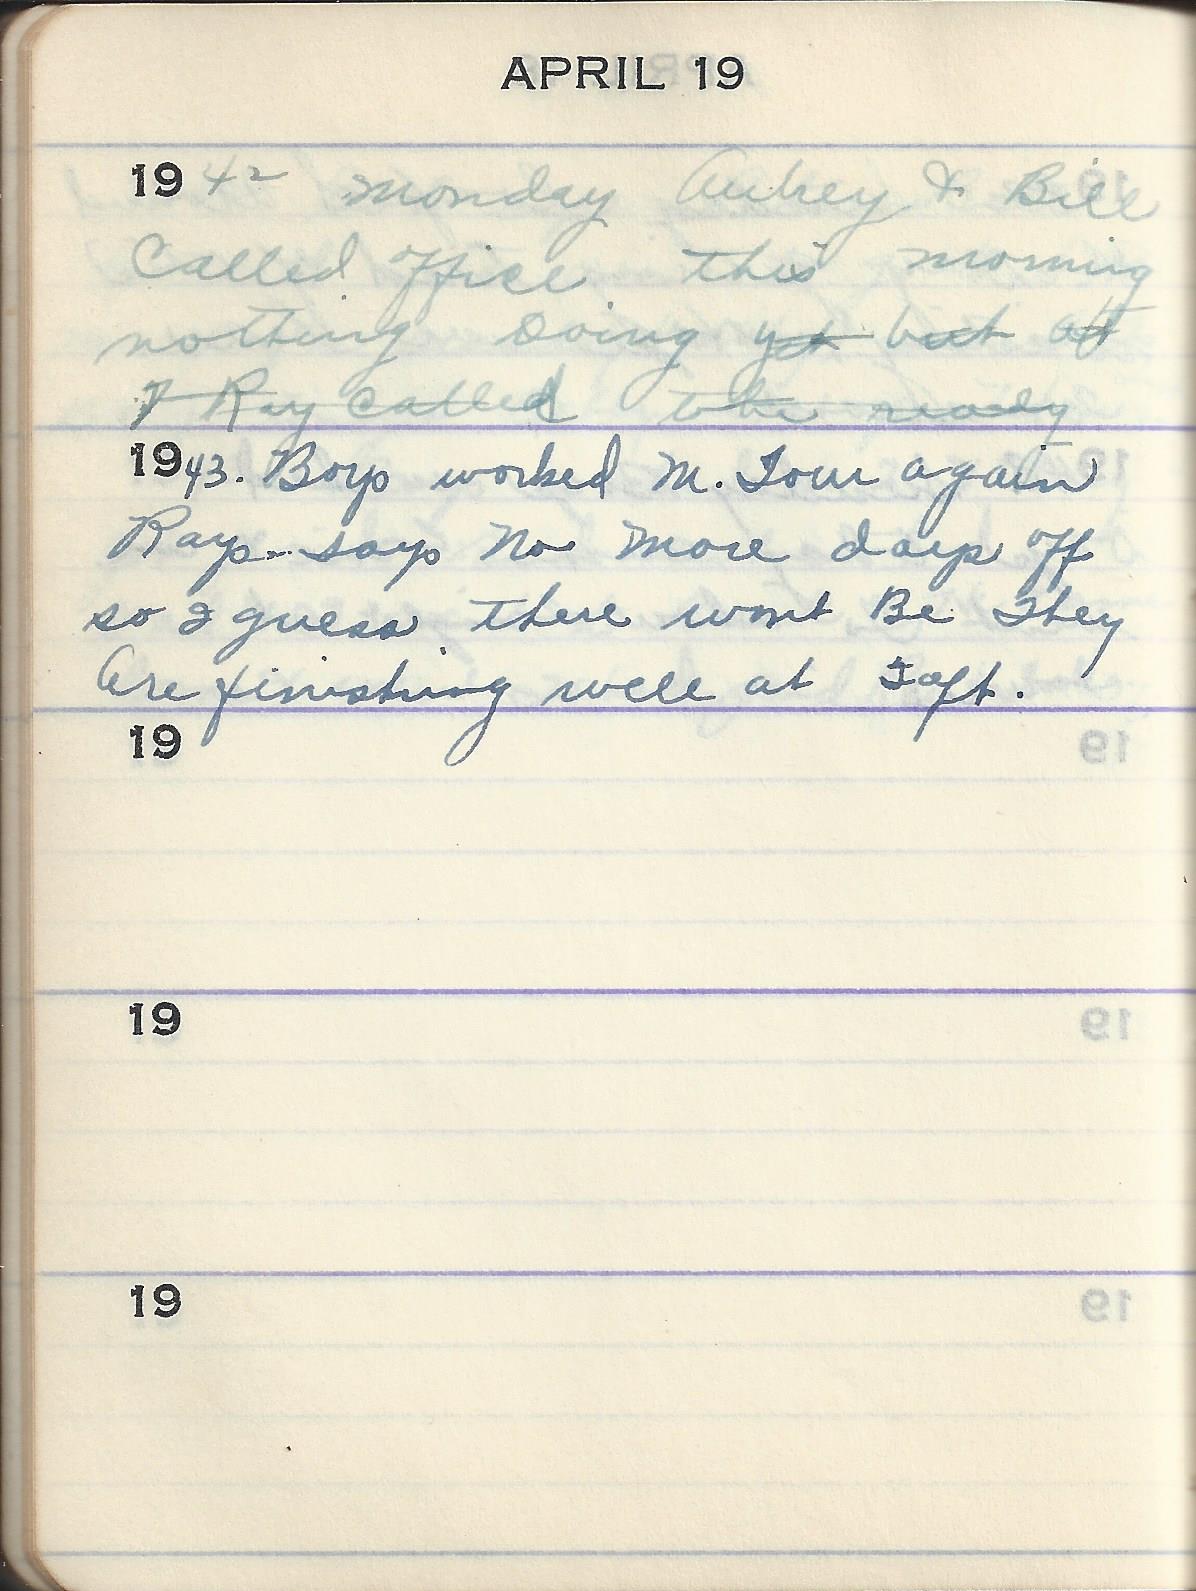 APRIL 19
1942 Monday Aubrey & Bill
Called office this morning
nothing Doing yet but at
7 Ray Called to be ready
1943. Boys worked M. Tour again
Rays-- says No More days off
so I guess there wont Be They
Are finishing well at Taft.
19
19
19